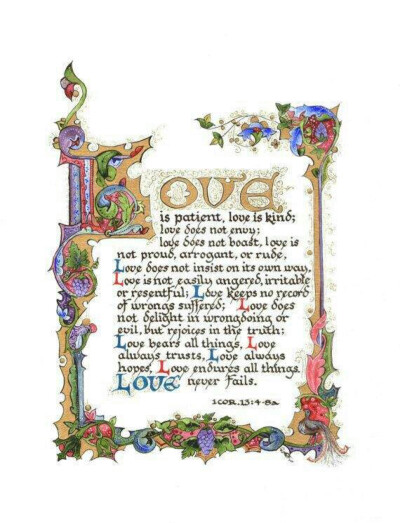 LOVE
is patient, love is kind;
love does not envy;
love does not boast, love is
not proud, arrogant, or rude,
Love does not insist on its own way,
Love is not easily angered, irritable
or resentful; Love keeps no record
of wrongs suffered; Love does
not delight in wrongdoing or
evil, but rejoices in the truth;
Love bears all things, Love
always trusts, Love always
hopes, Love endures all things.
LOVE never fails.
1 COR. 13:4-8a